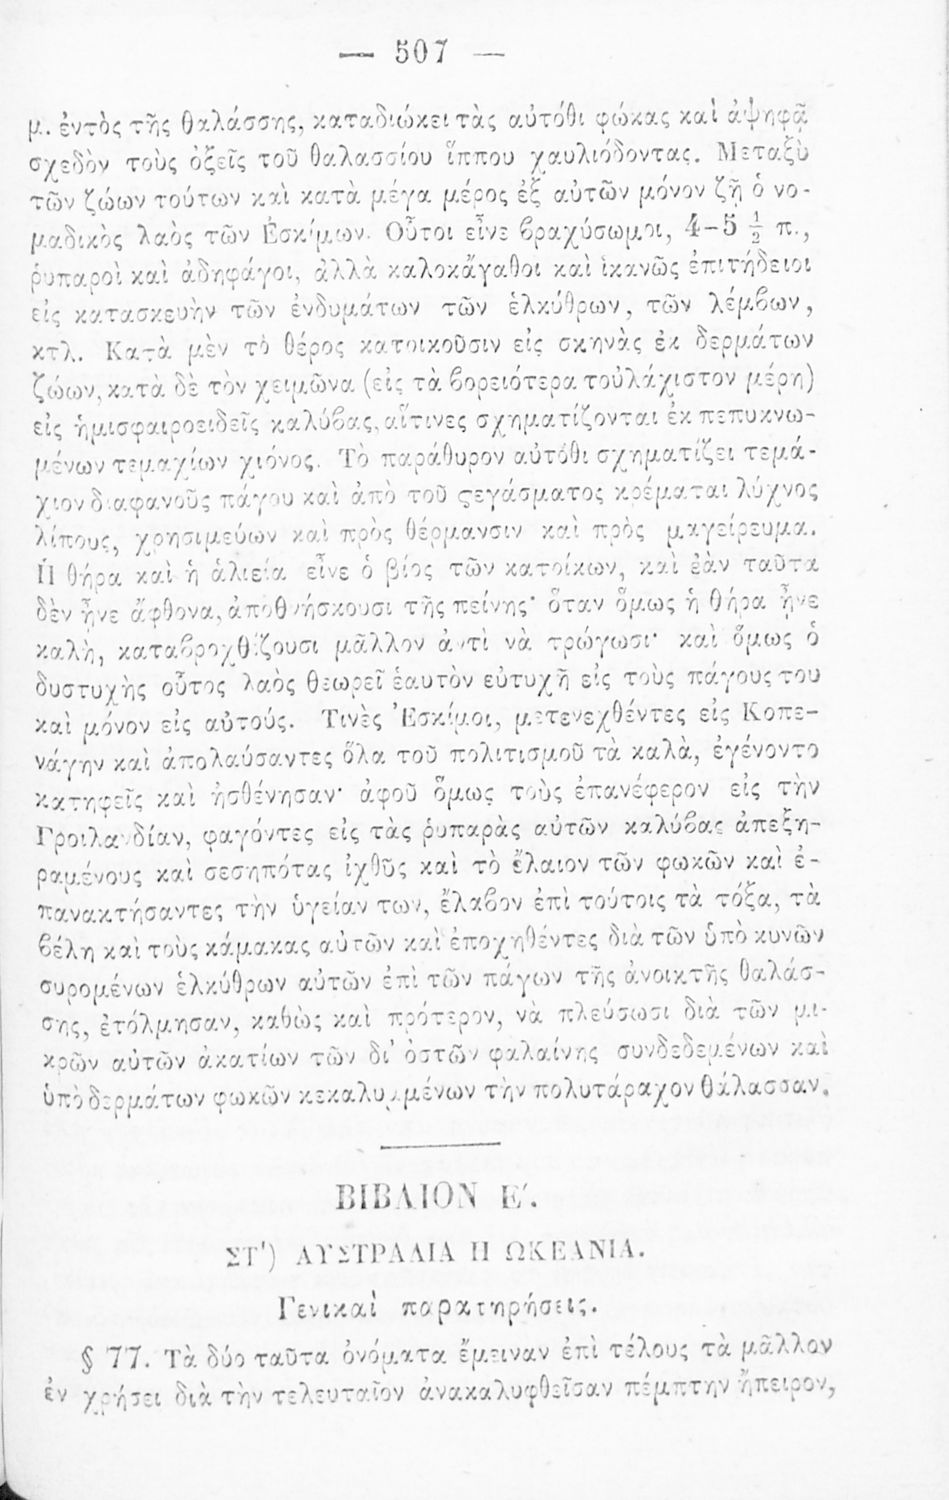 — 507 —
μ. ἐντὸς τῆς θαλάσσης, καταδιώκει τὰς αὐτόθι φώκας καὶ ἀψηφᾷ
σχεδὸν τοὺς ὀξεῖς τοῦ θαλασσίου ἵππου χαυλιόδοντας. Μεταξὺ
τῶν ζώων τούτων καὶ κατὰ μέγα μέρος ἐξ αὐτῶν μόνον ζῇ ὁ νο-
μαδικὸς λαὸς τῶν Ἐσκίμων. Οὗτοι εἶνε βραχύσωμοι, 4–5 ½ π.,
ῥυπαροὶ καὶ ἀδηφάγοι, ἀλλὰ καλοκἄγαθοι καὶ ἱκανῶς ἐπιτήδειοι
εἰς κατασκευὴν τῶν ἐνδυμάτων τῶν ἑλκύθρων, τῶν λέμβων,
κτλ. Κατὰ μὲν τὸ θέρος κατοικοῦσιν εἰς σκηνὰς ἐκ δερμάτων
ζώων, κατὰ δὲ τὸν χειμῶνα (εἰς τὰ βορειότερα τοὐλάχιστον μέρη)
εἰς ἡμισφαιροειδεῖς καλύβας, αἵτινες σχηματίζονται ἐκ πεπυκνω-
μένων τεμαχίων χιόνος. Τὸ παράθυρον αὐτόθι σχηματίζει τεμά-
χιον διαφανοῦς πάγου καὶ ἀπὸ τοῦ ςεγάσματος κρέμαται λύχνος
λίπους, χρησιμεύων καὶ πρὸς θέρμανσιν καὶ πρὸς μαγείρευμα.
Ἡ θήρα καὶ ἡ ἁλιεία εἶνε ὁ βίος τῶν κατοίκων, καὶ ἐὰν ταῦτα
δὲν ἦνε ἄφθονα, ἀποθνήσκουσι τῆς πείνης· ὅταν ὅμως ἡ θήρα ἦνε
καλὴ, καταβροχθίζουσι μᾶλλον ἀντὶ νὰ τρώγωσι· καὶ ὅμως ὁ
δυστυχὴς οὗτος λαὸς θεωρεῖ ἑαυτὸν εὐτυχῆ εἰς τοὺς πάγους του
καὶ μόνον εἰς αὐτούς. Τινὲς Ἐσκίμοι, μετενεχθέντες εἰς Κοπε-
νάγην καὶ ἀπολαύσαντες ὅλα τοῦ πολιτισμοῦ τὰ καλὰ, ἐγένοντο
κατηφεῖς καὶ ἠσθένησαν· ἀφοῦ ὅμως τοὺς ἐπανέφερον εἰς τὴν
Γροιλανδίαν, φαγόντες εἰς τὰς ῥυπαρὰς αὐτῶν καλύβας ἀπεξη-
ραμένους καὶ σεσηπότας ἰχθῦς καὶ τὸ ἔλαιον τῶν φωκῶν καὶ ἐ-
πανακτήσαντες τὴν ὑγείαν των, ἔλαβον ἐπὶ τούτοις τὰ τόξα, τὰ
βέλη καὶ τοὺς κάμακας αὐτῶν καὶ ἐποχηθέντες διὰ τῶν ὑπὸ κυνῶν
συρομένων ἑλκύθρων αὐτῶν ἐπὶ τῶν πάγων τῆς ἀνοικτῆς θαλάσ-
σης, ἐτόλμησαν, καθὼς καὶ πρότερον, νὰ πλεύσωσι διὰ τῶν μι-
κρῶν αὐτῶν ἀκατίων τῶν δι' ὀστῶν φαλαίνης συνδεδεμένων καὶ
ὑπὸ δερμάτων φωκῶν κεκαλυμμένων τὴν πολυτάραχον θάλασσαν.
ΒΙΒΛΙΟΝ Ε΄.
ΣΤ') ΑΥΣΤΡΑΛΙΑ Η ΩΚΕΑΝΙΑ.
Γενικαὶ παρατηρήσεις.
§ 77. Τὰ δύο ταῦτα ὀνόματα ἔμειναν ἐπὶ τέλους τὰ μᾶλλον
ἐν χρήσει διὰ τὴν τελευταῖον ἀνακαλυφθεῖσαν πέμπτην ἤπειρον,